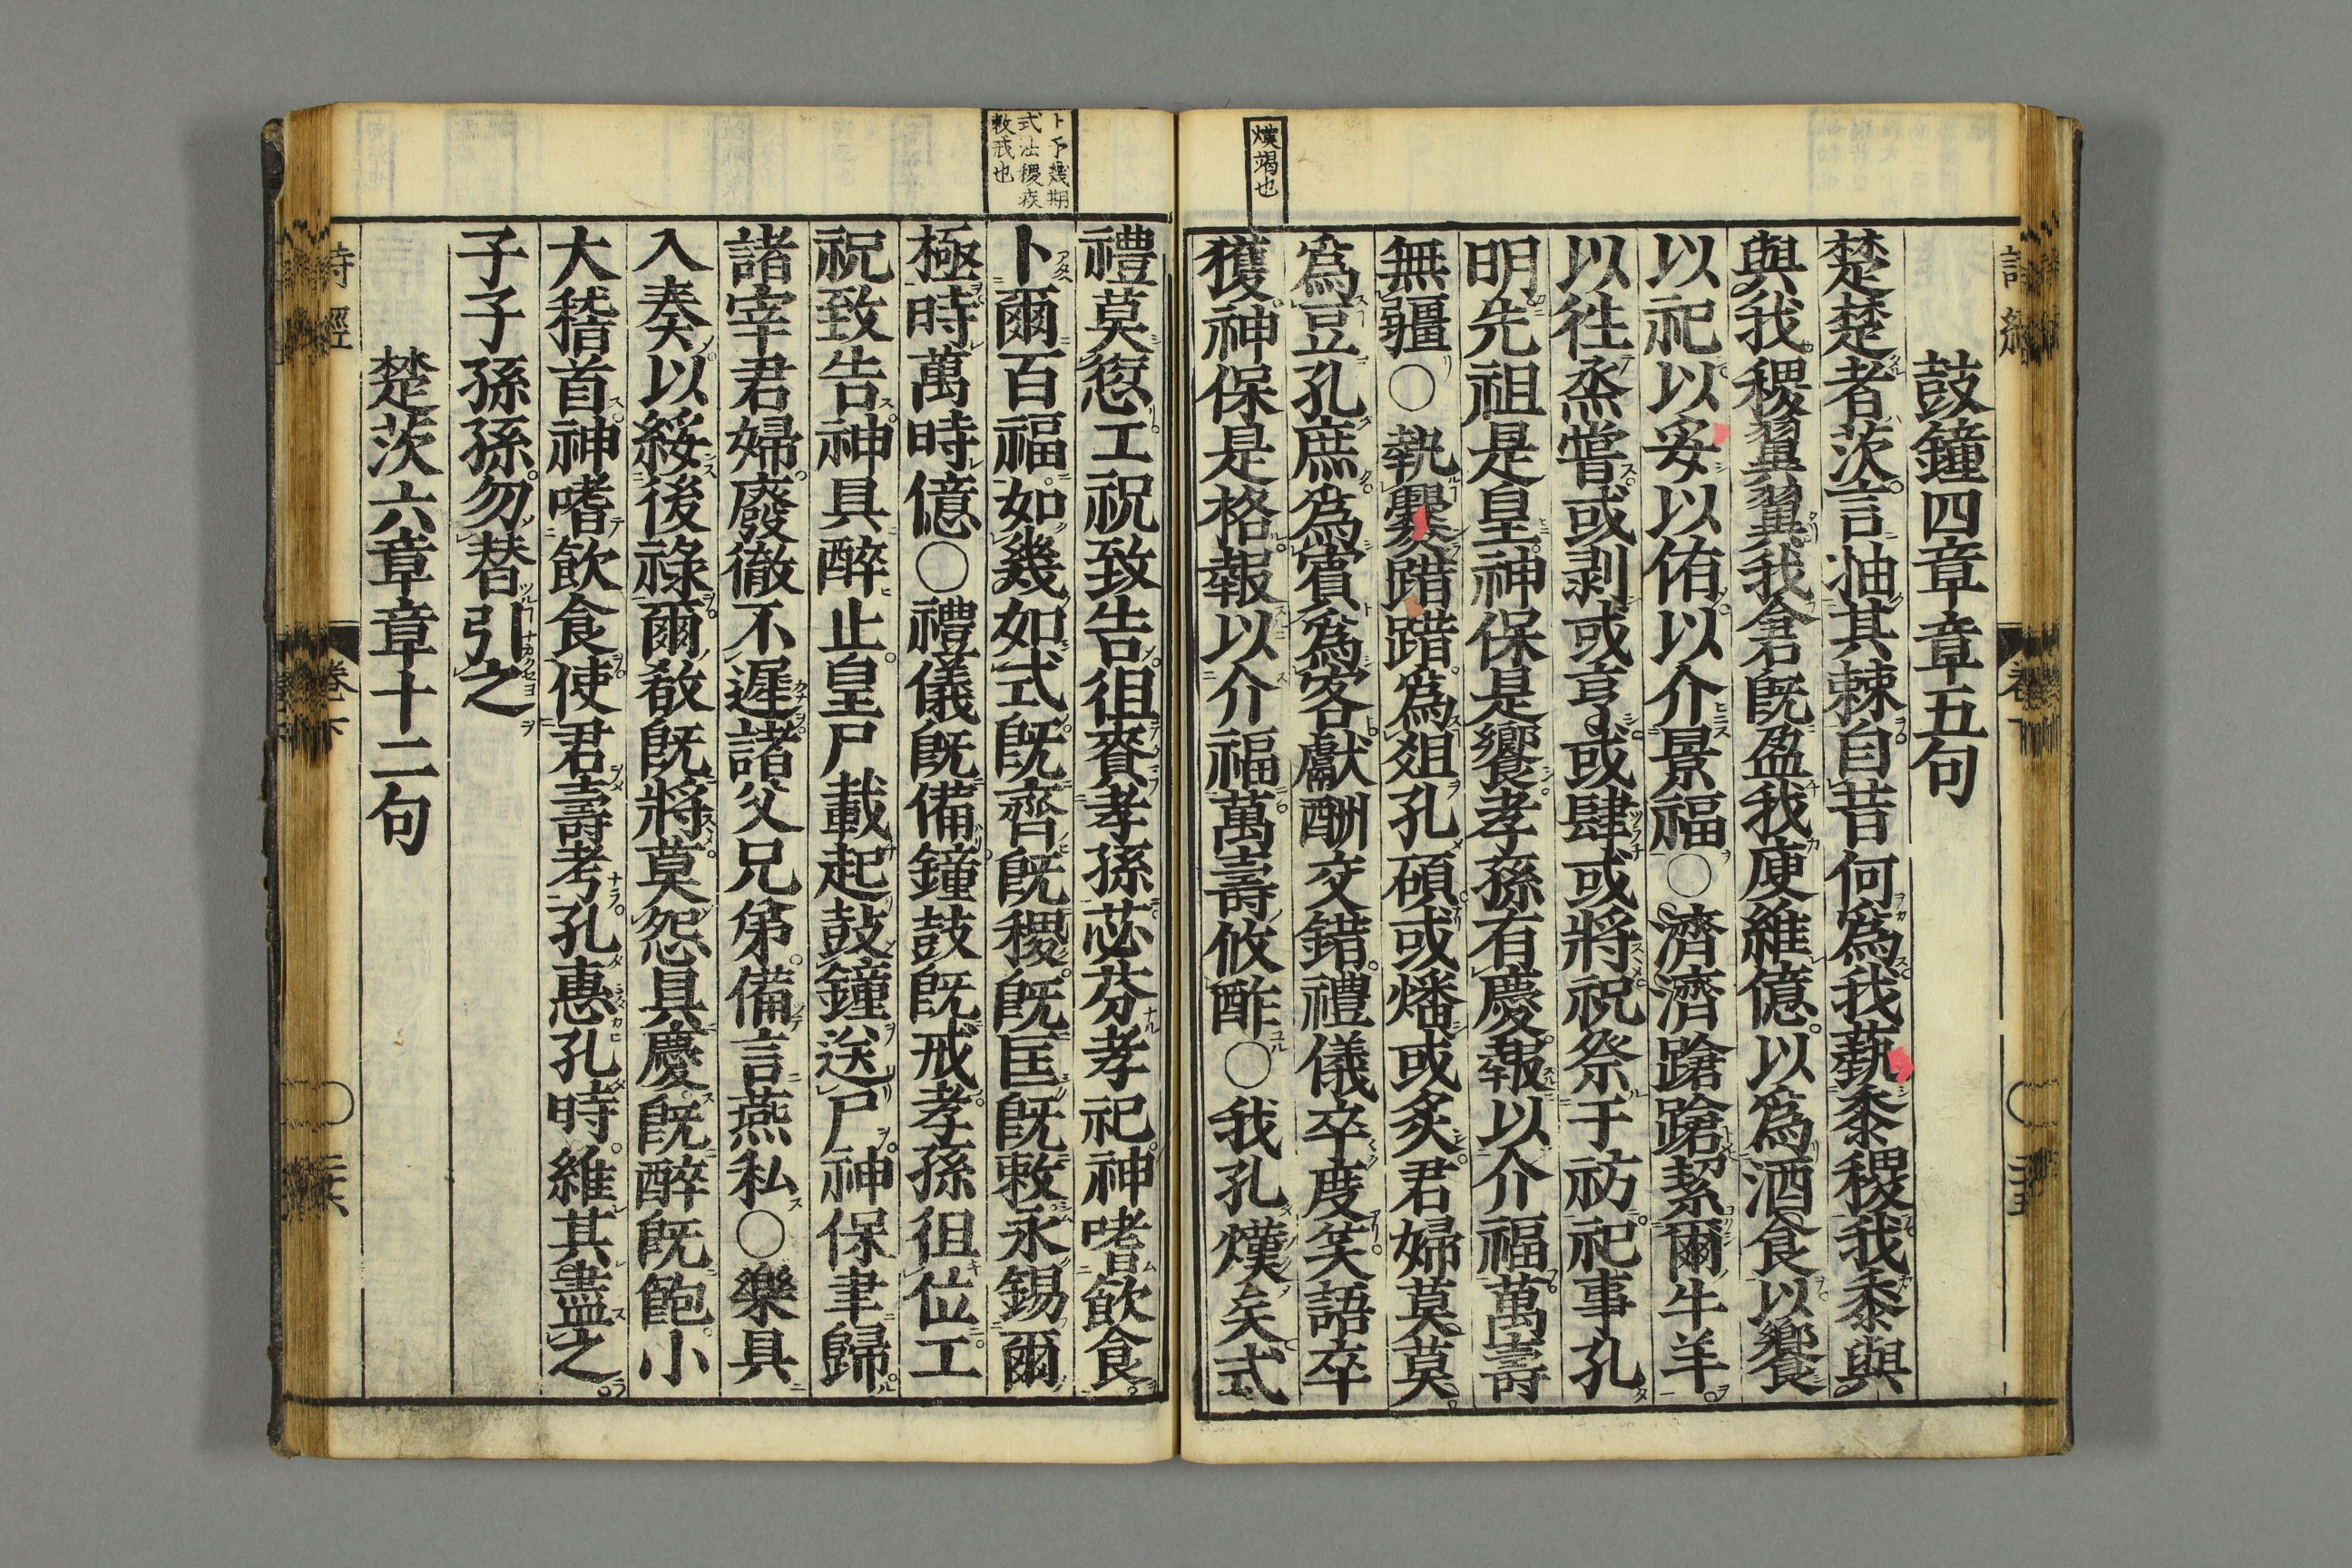 熯竭也
鼓鐘四章章五句
楚楚者茨言抽其棘自昔何爲我蓺黍稷我黍與
與我稷翼翼我倉旣盈我庾維億以爲酒食以饗
以祀以妥以侑以介景福○濟濟蹌蹌絜爾牛羊
以往烝嘗或剥或亨或肆或將祝祭于祊祀事孔
明先祖是皇神保是饗孝孫有慶報以介福萬壽
無疆○執爨踖踖爲俎孔碩或燔或炙君婦莫莫
爲豆孔庶爲賓爲客獻酬交錯禮儀卒度笑語卒
獲神保是格報以介福萬壽攸酢○我孔熯矣式
卜予幾期
式法稷疾
敕戒也
禮莫愆工祝致告徂賚孝孫苾芬孝祀神嗜飮食
卜爾百福如幾如式旣齊旣稷旣匡旣敕永錫爾
極時萬時億○禮儀旣備鐘鼓旣戒孝孫徂位工
祝致告神具醉止皇尸載起鼓鐘送尸神保聿歸
諸宰君婦廢徹不遲諸父兄弟備言燕私○樂具
入奏以綏後祿爾殽旣將莫怨具慶旣醉旣飽小
大稽首神嗜飮食使君壽考孔惠孔時維其盡之
子子孫孫勿替引之
楚茨六章章十二句
詩經
卷下